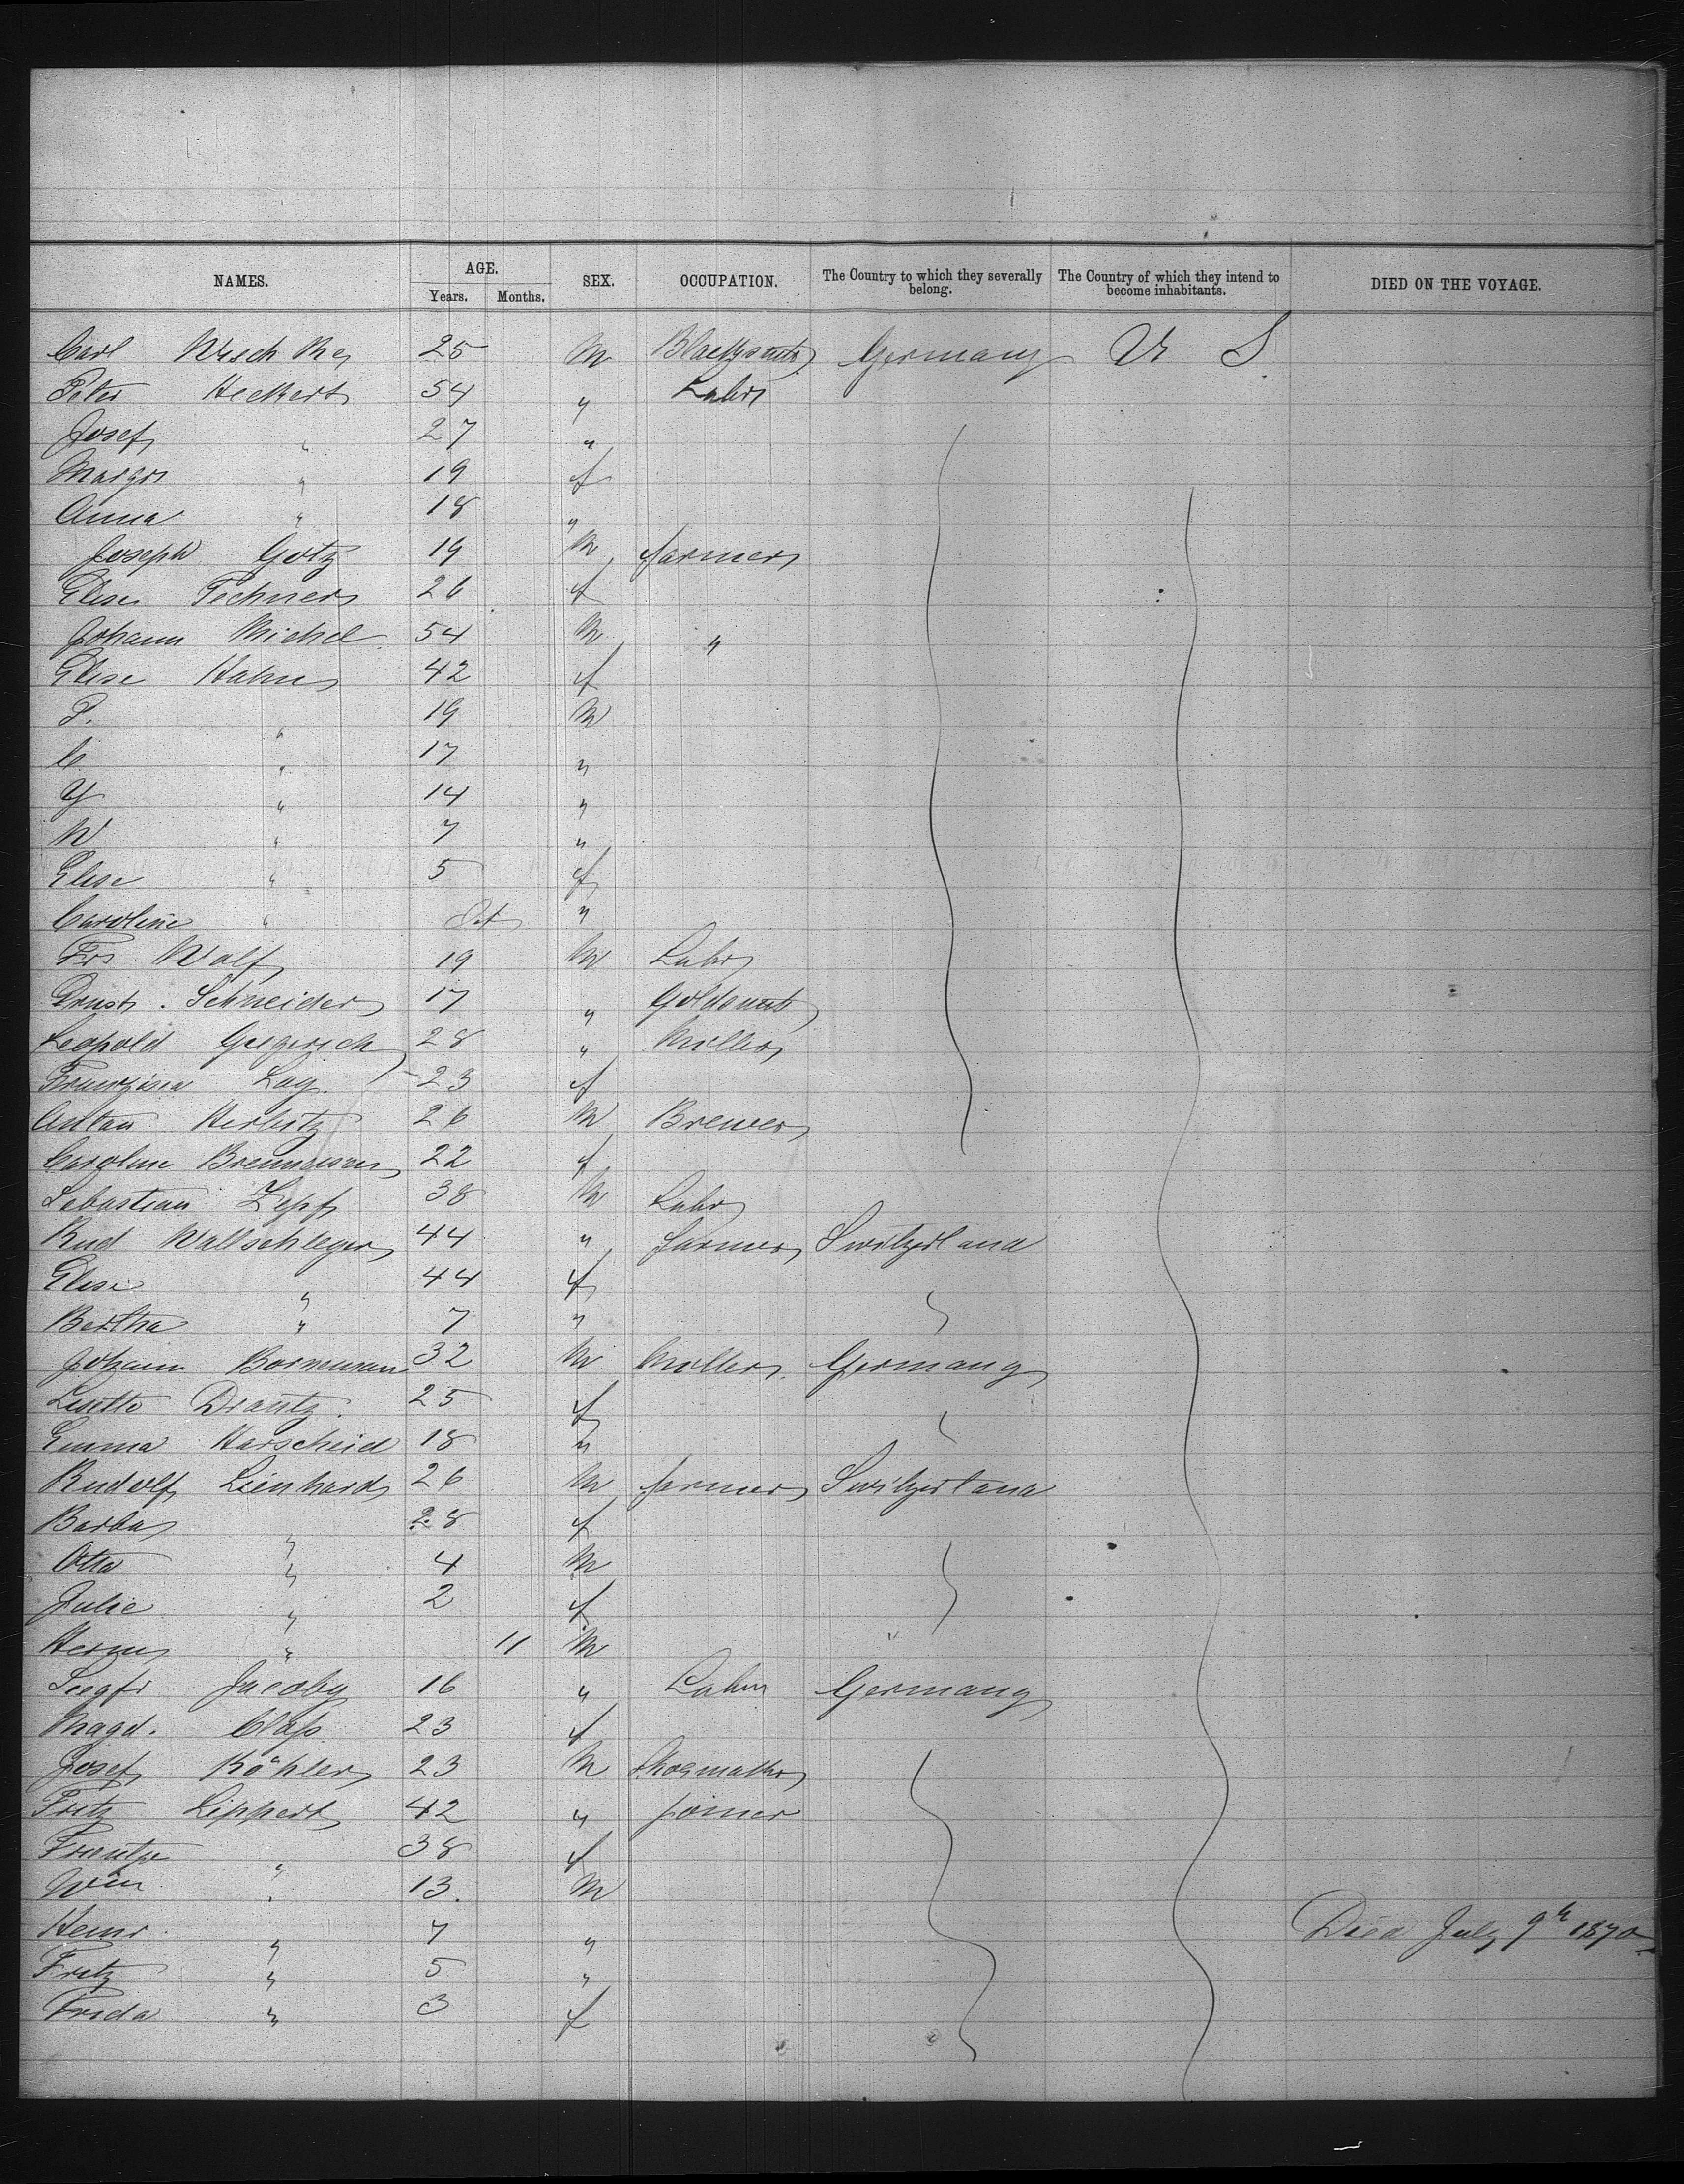 NAMES. AGE. SEX. OCCUPATION. The Country to which they severally belong. The Country of which they intend to become inhabitants. DIED ON THE VOYAGE.
Years. Months.
Carl 25 M Blacksmith Germany U S
Peter Heckert 54 " Labr
Josef " 27 "
Margr " 19 f
Anna " 18 "
Joseph Götz 19 M farmer
Elise 26 f
Johann Michel 54 M "
Elise Hahn 42 f
P. " 19 M
C " 17 "
Y " 14 "
W " 7 "
Elise " 5 f
Caroline " "
Frs Wolf 19 M Labr
Ernst Schneider 17 " Goldsmith
Leopold 28 " Miller
Franziska Lay 23 f
Anton Herbitz 26 M Brewer
Caroline 22 f
Sebastian Zepf 38 M Labr
Rud Wallschleger 44 " farmer Switzerland
Elise " 44 f
Bertha " 7 "
Johann Borneman 32 M Miller Germany
Lisette Drautz 25 f
Emma Harscheid 18 "
Rudolf Lienhard 26 M farmer Switzerland
Barba " 28 f
Otto " 4 M
Julie " 2 f
Herm " 11 M "
Siegfr Jacoby 16 " Labr Germany
Magd. Class 23 f
Josef Köhler 23 M Shoemaker
Fritz Lippert 42 " joiner
" 38 f
Wm " 13. M
Heinr " 7 " Died July 9th 1870
Fritz " 5 "
Frida " 3 f